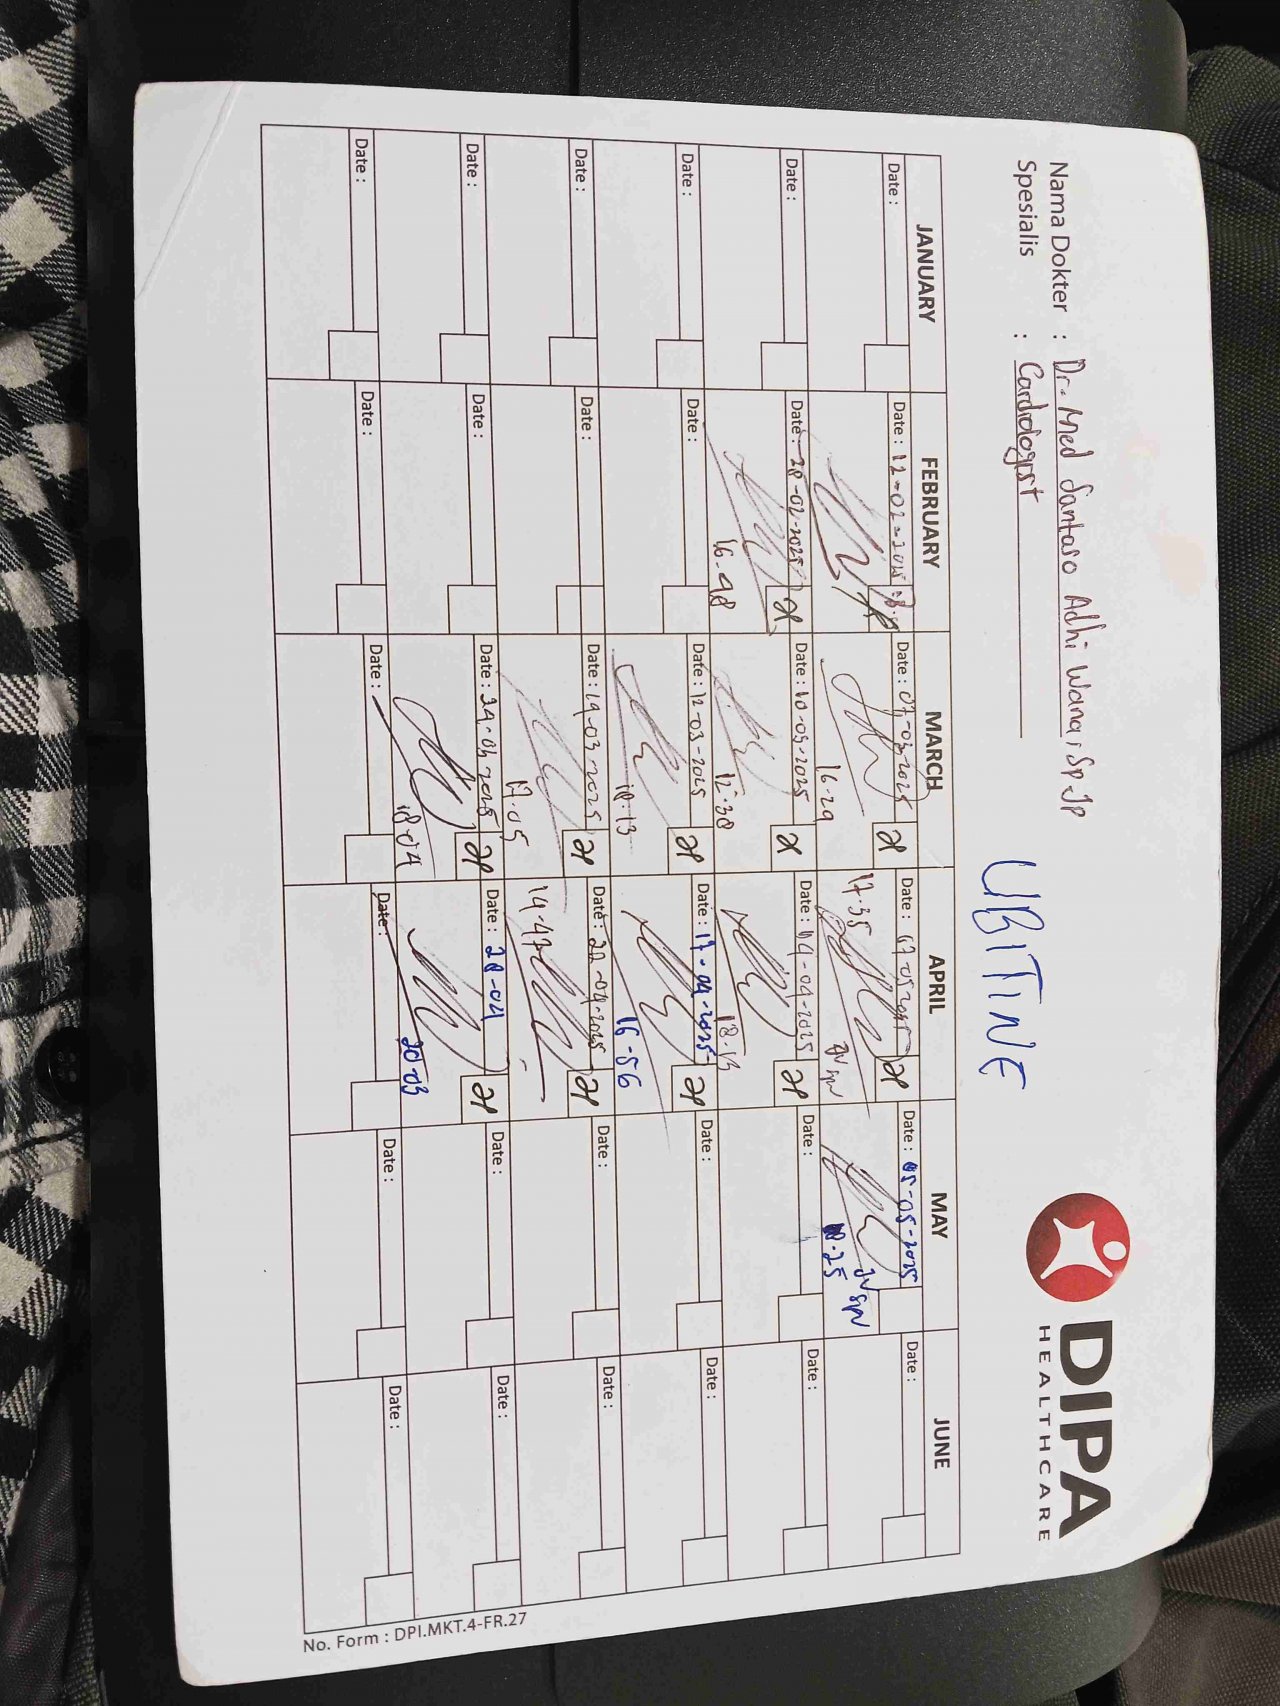 Nama Dokter : Dr. Med Santoso Adhi Wana, SpJP
Spesialis : Cardiologist
UBITINE
DIPA
HEALTHCARE
JANUARY FEBRUARY MARCH APRIL MAY JUNE
Date : Date : 12-02-2025 Date : 07-03-2025 Date : 07-05-2025 Date : 05-05-2025 Date :
16-29 17-35
Date : Date : 28-02-2025 Date : 10-03-2025 Date : 14-04-2025 Date : Date :
16-48 12-38 18-13
Date : Date : Date : 12-03-2025 Date : 17-04-2025 Date : Date :
18-13 16-56
Date : Date : Date : 19-03-2025 Date : 22-04-2025 Date : Date :
17-05 14-47
Date : Date : Date : 24-03-2025 Date : 28-04 Date : Date :
18-04 20-03
Date : Date : Date : Date : Date : Date :
No. Form : DPI.MKT.4-FR.27